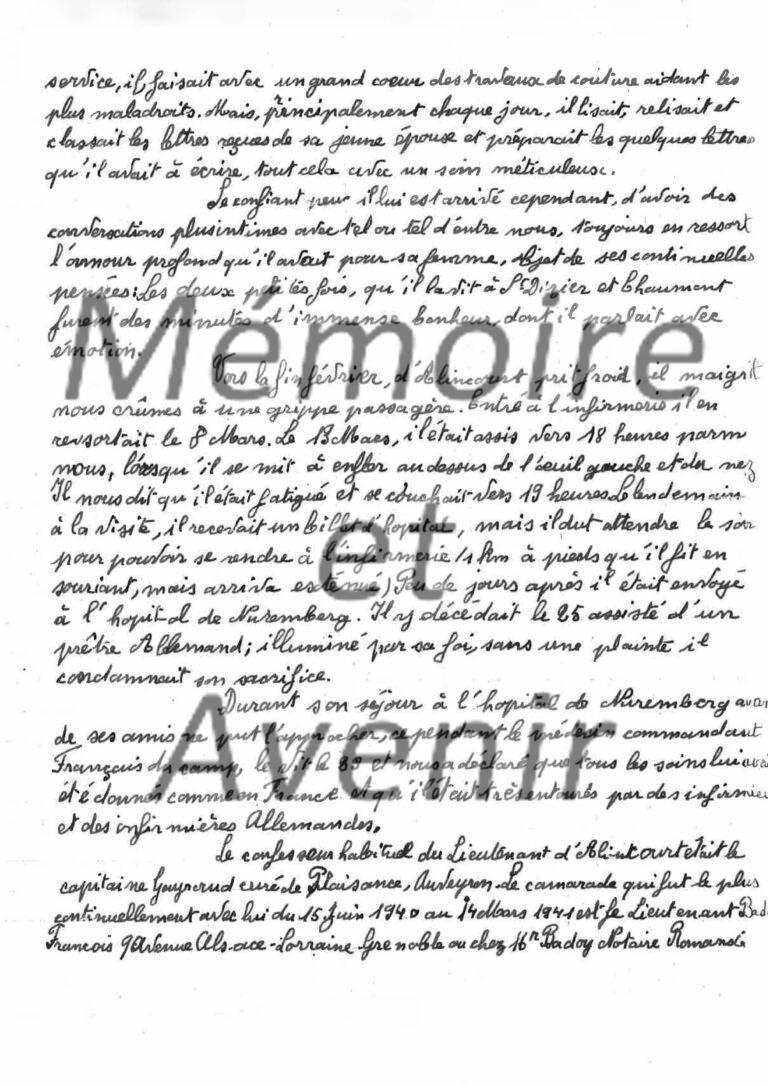 service, il faisait avec un grand coeur des travaux de couture aidant les
plus maladroits. Mais, principalement chaque jour, il lisait, relisait et
classait les lettres reçues de sa jeune épouse et préparait les quelques lettres
qu'il avait à écrire, tout cela avec un soin méticuleux.
Se confiant peu il lui est arrivé cependant, d'avoir des
conversations plus intimes avec tel ou tel d'entre nous, toujours en ressort
l'amour profond qu'il avait pour sa femme, objet de ses continuelles
pensées: Les deux petites fois, qu'il la vit à St Dizier et Chaumont
furent des minutes d'immense bonheur, dont il parlait avec
émotion.
Mémoire
Vers la fin février, d'Alincourt prit froid, il maigrit
nous crûmes à une grippe passagère. Entré à l'infirmerie il en
ressortait le 8 Mars. Le 13 Mars, il était assis vers 18 heures parm
nous, lorsqu'il se mit à enfler au dessus de l'oeuil gauche et du nez
Il nous dit qu'il était fatigué et se couchait vers 19 heures. Le lendemain
à la visite, il recevait un billet d'hopital, mais il dut attendre le soir
pour pouvoir se rendre à l'infirmerie (1 km à pieds qu'il fit en
souriant, mais arriva exténué) Peu de jours après il était envoyé
à l'hopital de Nuremberg. Il y décédait le 25 assisté d'un
et
prêtre Allemand; illuminé par sa foi, sans une plainte il
condamnait son sacrifice.
Durant son séjour à l'hopital de Nuremberg aucun
de ses amis ne put l'approcher, cependant le médecin commandant
Avenir
Français du camp, le vit le et nous a déclaré que tous les soins lui
été donnés comme en France et qu'il était très entourés par des infirmie
et des infirmières Allemandes.
Le confesseur habituel du Lieutenant d'Alincourt était le
capitaine curé de Plaisance, Auveyron. Le camarade qui fut le plus
continuellement avec lui du 15 Juin 1940 au 14 Mars 1941 est le Lieutenant Bad
Francois 9 Avenue Alsace-Lorraine Grenoble ou chez Mr Badoy Notaire Romans